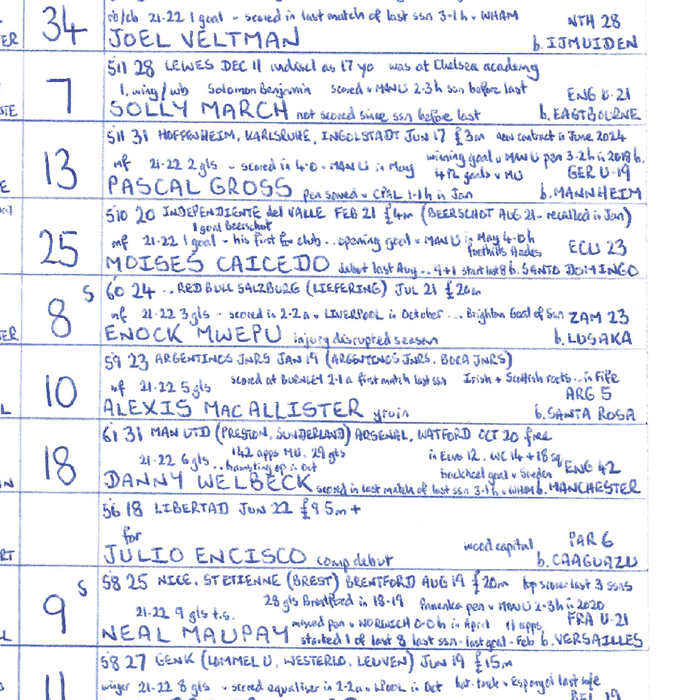 ER 34 rb/cb 21-22 1 goal - scored in last match of last ssn 3-1 h v WHAM NTH 28
JOEL VELTMAN b. IJMUIDEN
5'11 28 LEWES DEC 11 undiscl as 17 yo was at Chelsea academy
7 l. wing/wb Solomon Benjamin scored v MANU 2-3 h ssn before last ENG U-21
STE SOLLY MARCH not scored since ssn before last b. EASTBOURNE
5'11 31 HOFFENHEIM, KARLSRUHE, INGOLSTADT JUN 17 £3m new contract is June 2024
winning goal v MAN U pen 3-2 h in 2018
13 mf 21-22 2 gls - scored in 4-0 v MAN U in May 4 PL goals v MU GER U-19
E PASCAL GROSS pen saved v CPAL 1-1 h in Jan b. MANNHEIM
5'10 20 INDEPENDIENTE del VALLE FEB 21 £4m (BEERSCHOT AUG 21 - recalled in Jan)
1 goal Beerschot
25 mf 21-22 1 goal - his first for club... opening goal v MAN U in May 4-0 h ECU 23
MOISES CAICEDO debut last Aug .. b. SANTO DOMINGO
S 6'0 24 .. RED BULL SALZBURG (LIEFERING) JUL 21 £20m
8 mf 21-22 3 gls - scored in 2-2 a v LIVERPOOL in October ... Brighton Goal of Ssn ZAM 23
TER ENOCK MWEPU injury disrupted season b. LUSAKA
5'9 23 ARGENTINOS JNRS JAN 19 (ARGENTINOS JNRS, BOCA JNRS)
10 mf 21-22 5 gls scored at BURNLEY 2-1 a first match last ssn Irish + Scottish roots .. in Fife
ARG 5
L ALEXIS MAC ALLISTER groin b. SANTA ROSA
6'1 31 MAN UTD (PRESTON, SUNDERLAND) ARSENAL, WATFORD OCT 20 free
142 apps MU. 29 gls in Euro 12. WC 14 + 18 sq
18 21-22 6 gls... hamstring op in Oct backheel goal v Sweden ENG 42
N DANNY WELBECK scored in last match of last ssn 3-1 h v WHAM b. MANCHESTER
5'6 18 LIBERTAD JUN 22 £9.5m +
for
wood capital PAR 6
RT JULIO ENCISO comp debut b. CAAGUAZU
S 5'8 25 NICE, ST ETIENNE (BREST) BRENTFORD AUG 19 £20m top scorer last 3 ssns
28 gls Brentford in 18-19 Panenka pen v MAN U 2-3 h in 2020
9 21-22 9 gls t.s. missed pen v NORWICH 0-0 h in April 11 apps FRA U-21
L NEAL MAUPAY started 1 of last 8 last ssn - last goal - Feb b. VERSAILLES
5'8 27 GENK (LOMMEL U, WESTERLO, LEUVEN) JUN 19 £15m
11 winger 21-22 8 gls - scored equaliser in 2-2 a v LPOOL in Oct hat-trick v Espanyol last wk
BEL 19